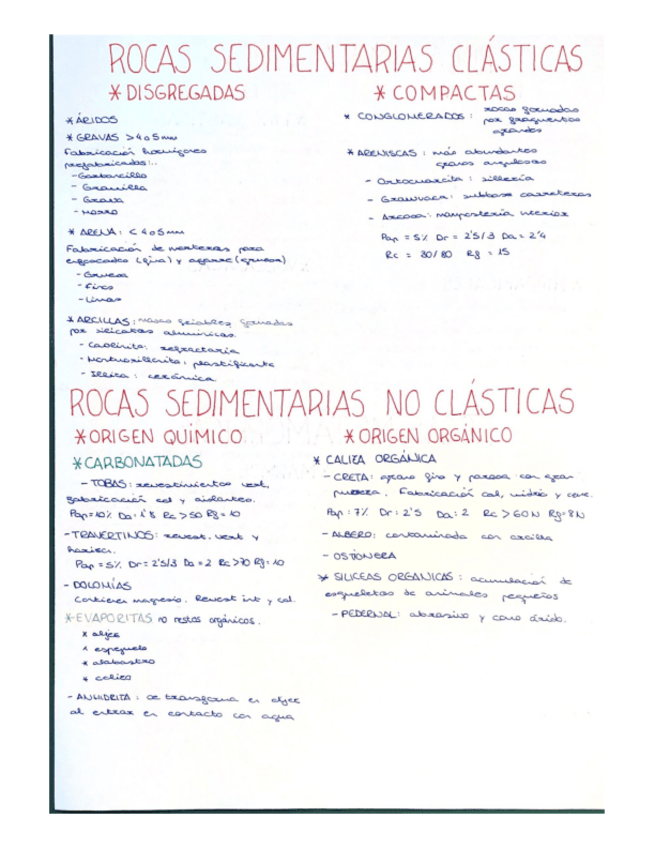 ROCAS SEDIMENTARIAS CLÁSTICAS
* DISGREGADAS
* ÁRIDOS
* GRAVAS > 4 o 5 mm
Fabricación hormigones
prefabricados...
- Garbancillo
- Gravilla
- Grava
- Morro
* ARENA: < 4 o 5 mm
Fabricación de morteros para
enfoscados (fina) y agarre (gruesa)
- Gruesa
- Fina
- Limos
* ARCILLAS: masas friables formadas
por silicatos alumínicos.
- Caolinita: refractaria
- Montmorillonita: plastificante
- Illita: cerámica
* COMPACTAS
* CONGLOMERADOS: rocas formadas
por fragmentos
grandes
* ARENISCAS: más abundantes
granos angulosos
- Ortocuarcita: sillería
- Grauwaca: subbase carreteras
- Arcosa: mampostería interior
Pap = 5% Dr = 2'5/3 Da = 2'4
Rc = 30/80 Rf = 15
ROCAS SEDIMENTARIAS NO CLÁSTICAS
* ORIGEN QUÍMICO
* CARBONATADAS
- TOBAS: revestimientos vert,
fabricación cal y aislantes.
Pap = 10% Da = 1'8 Rc > 50 Rf = 10
- TRAVERTINOS: revest. vert y
horizon.
Pap = 5% Dr = 2'5/3 Da = 2 Rc > 70 Rf = 10
- DOLOMÍAS
Contienen magnesio. Revest int y cal.
* EVAPORITAS no restos orgánicos.
* aljez
* espejuelo
* alabastro
*
- ANHIDRITA: se transforma en aljez
al entrar en contacto con agua
* ORIGEN ORGÁNICO
* CALIZA ORGÁNICA
- CRETA: grano fino y porosa con gran
pureza. Fabricación cal, vidrio y ceme.
Pap = 7% Dr = 2'5 Da = 2 Rc > 60N Rf = 8N
- ALBERO: contaminada con arcilla
- OSTIONERA
* SILICEAS ORGANICAS: acumulación de
esqueletos de animales pequeños
- PEDERNAL: abrasivo y como árido.